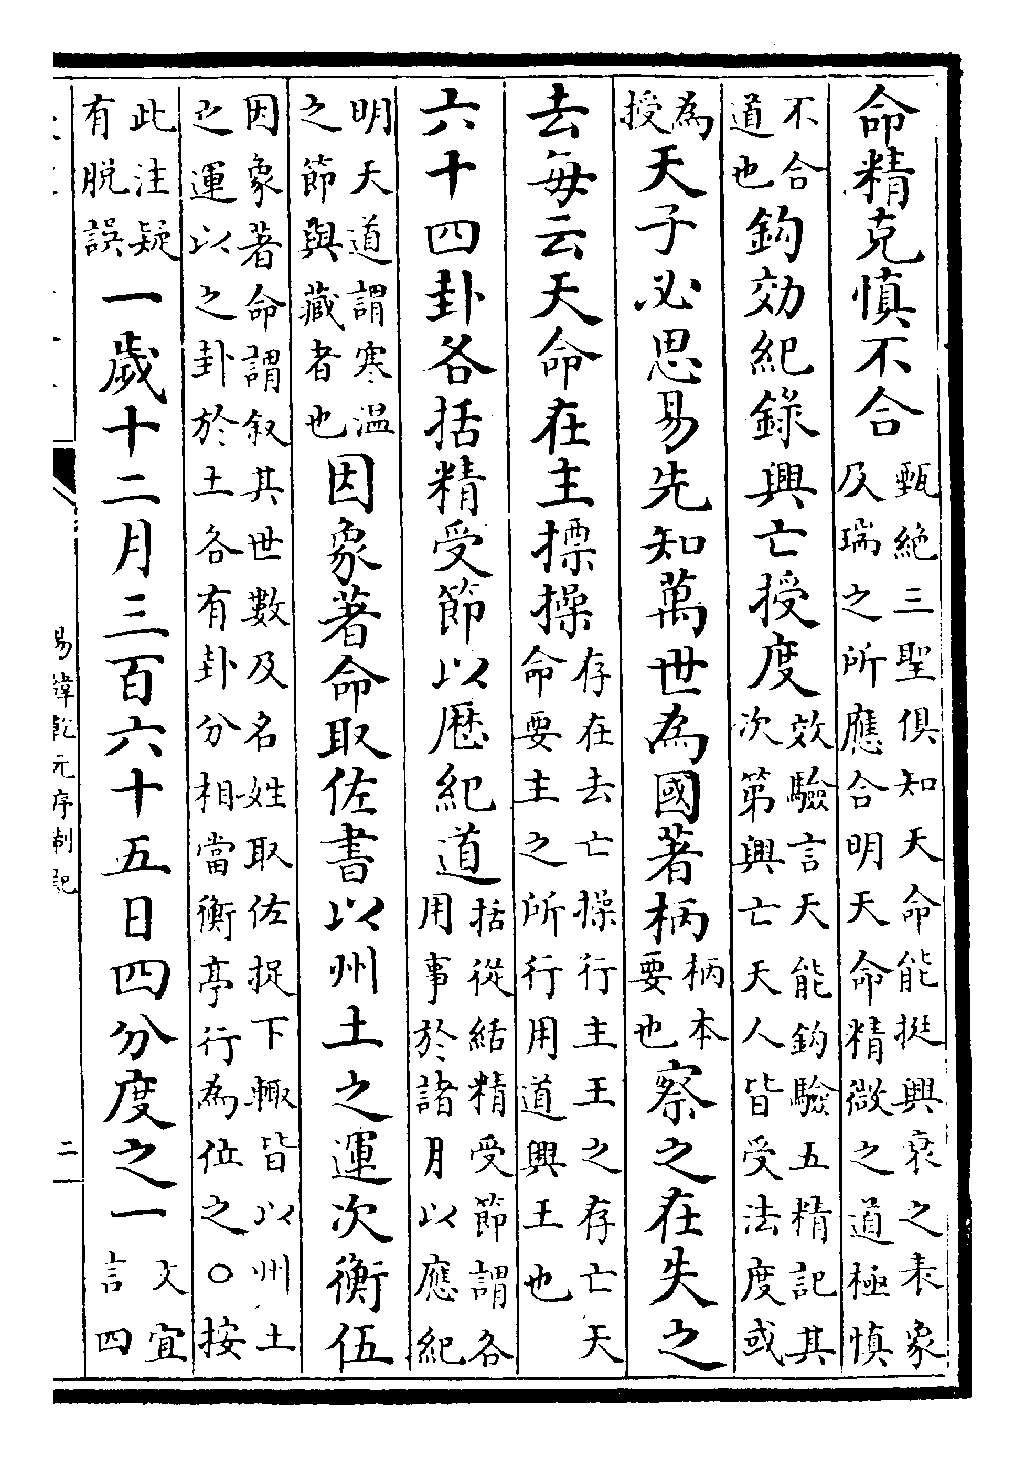 命精克慎不合甄絶三聖俱知天命能挺興衰之表象及瑞之所應合明天命精微之道極慎
不合道也鈎効紀錄興亡授度效驗言天能鈎驗五精記其次第興亡天人皆受法度或
為授天子必思易先知萬世為國著柄柄本要也察之在失之
去每云天命在主摽操存在去亡操行主王之存亡天命要主之所行用道興王也
六十四卦各括精受節以厯紀道括從結精受節謂各用事於諸月以應紀
明天道謂寒温之節與藏者也因象著命取佐書以州土之運次衡伍
因象著命謂叙其世數及名姓取佐捉下輙皆以州土之運以之卦於土各有卦分相當衡亭行為位之○按
此注疑有脱誤一歲十二月三百六十五日四分度之一文宜言四
易緯乾元序制記 二